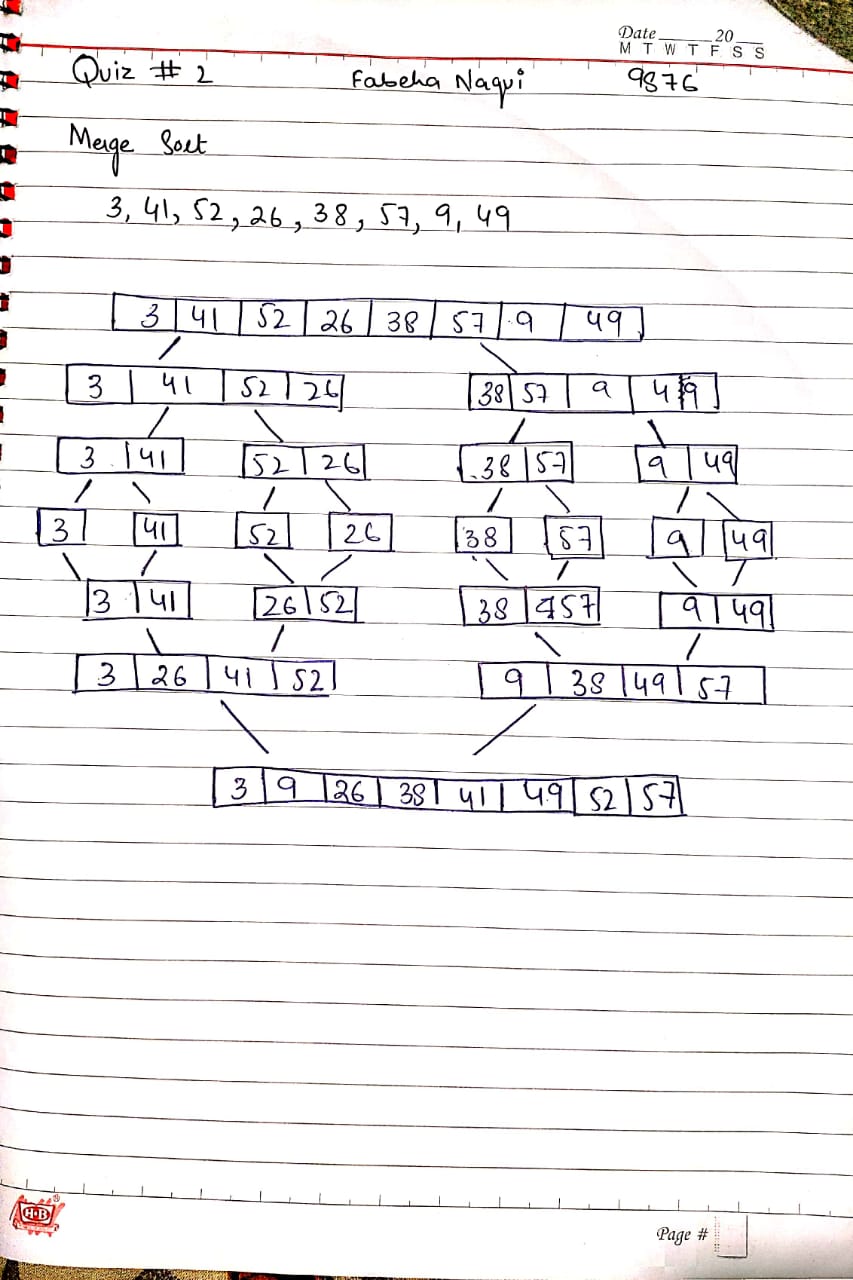 Date 20
M T W T F S S
Quiz # 2 Fabeha Naqvi 9876
Merge Sort
3, 41, 52, 26, 38, 57, 9, 49
3 41 52 26 38 57 9 49
3 41 52 26 38 57 9 49
3 41 52 26 38 57 9 49
3 41 52 26 38 57 9 49
3 41 26 52 38 57 9 49
3 26 41 52 9 38 49 57
3 9 26 38 41 49 52 57
H·B ®
Page #